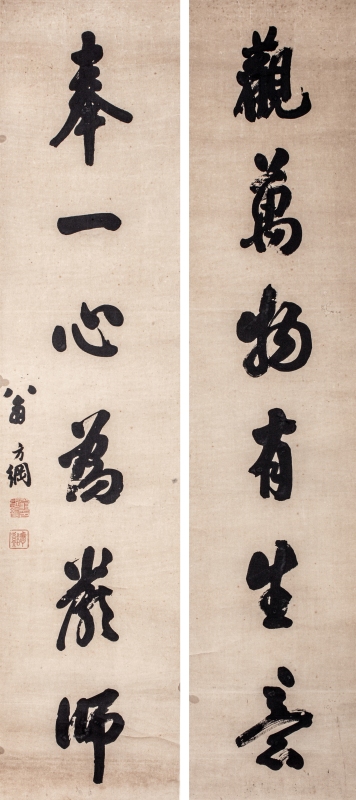 觀萬物有生意
奉一心為嚴師
翁方綱